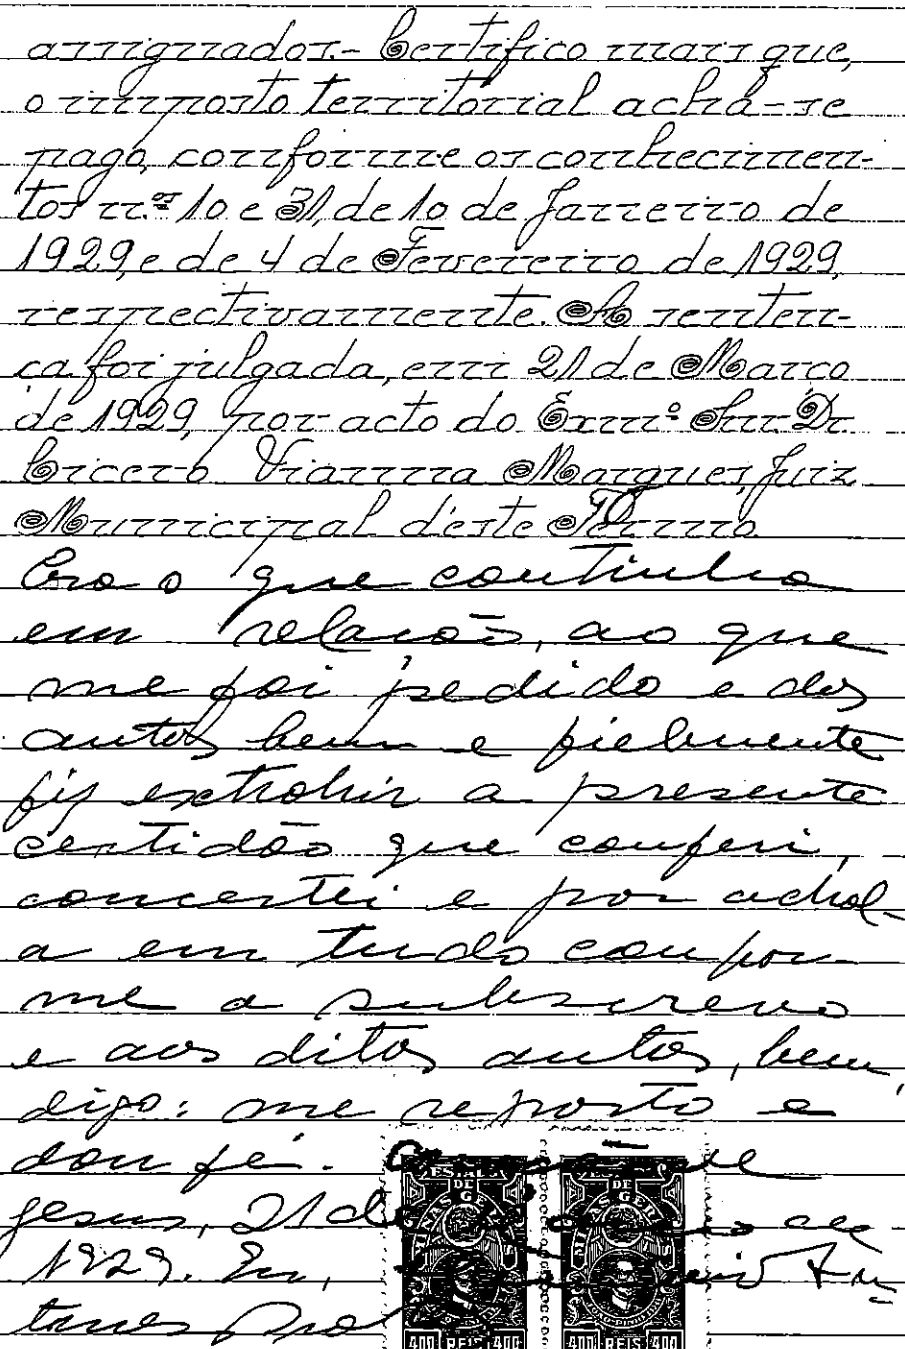 assignados.- Certifico mais que,
o imposto territorial acha-se
pago, conforme os conhecimen-
tos n.os 10 e 31, de 10 de Janeiro de
1929, e de 4 de Fevereiro de 1929,
respectivamente. A senten-
ça foi julgada, em 21 de Março
de 1929, por acto do Exmº Snr. Dr.
Cicero Vianna Marques, Juiz
Municipal d'este Termo.
Era o que continha
em relação, ao que
me foi pedido e dos
autos bem e fielmente
fiz extrahir a presente
certidão que conferi,
concertei e por achal-
a em tudo confor-
me a subscrevo
e aos ditos autos, bem,
digo: me reporto e
dou fé.
Jesus, 21 de
1929. Eu,
ESTADO DE MINAS GERAES
400 REIS 400
DE MINAS GERAES
400 REIS 400